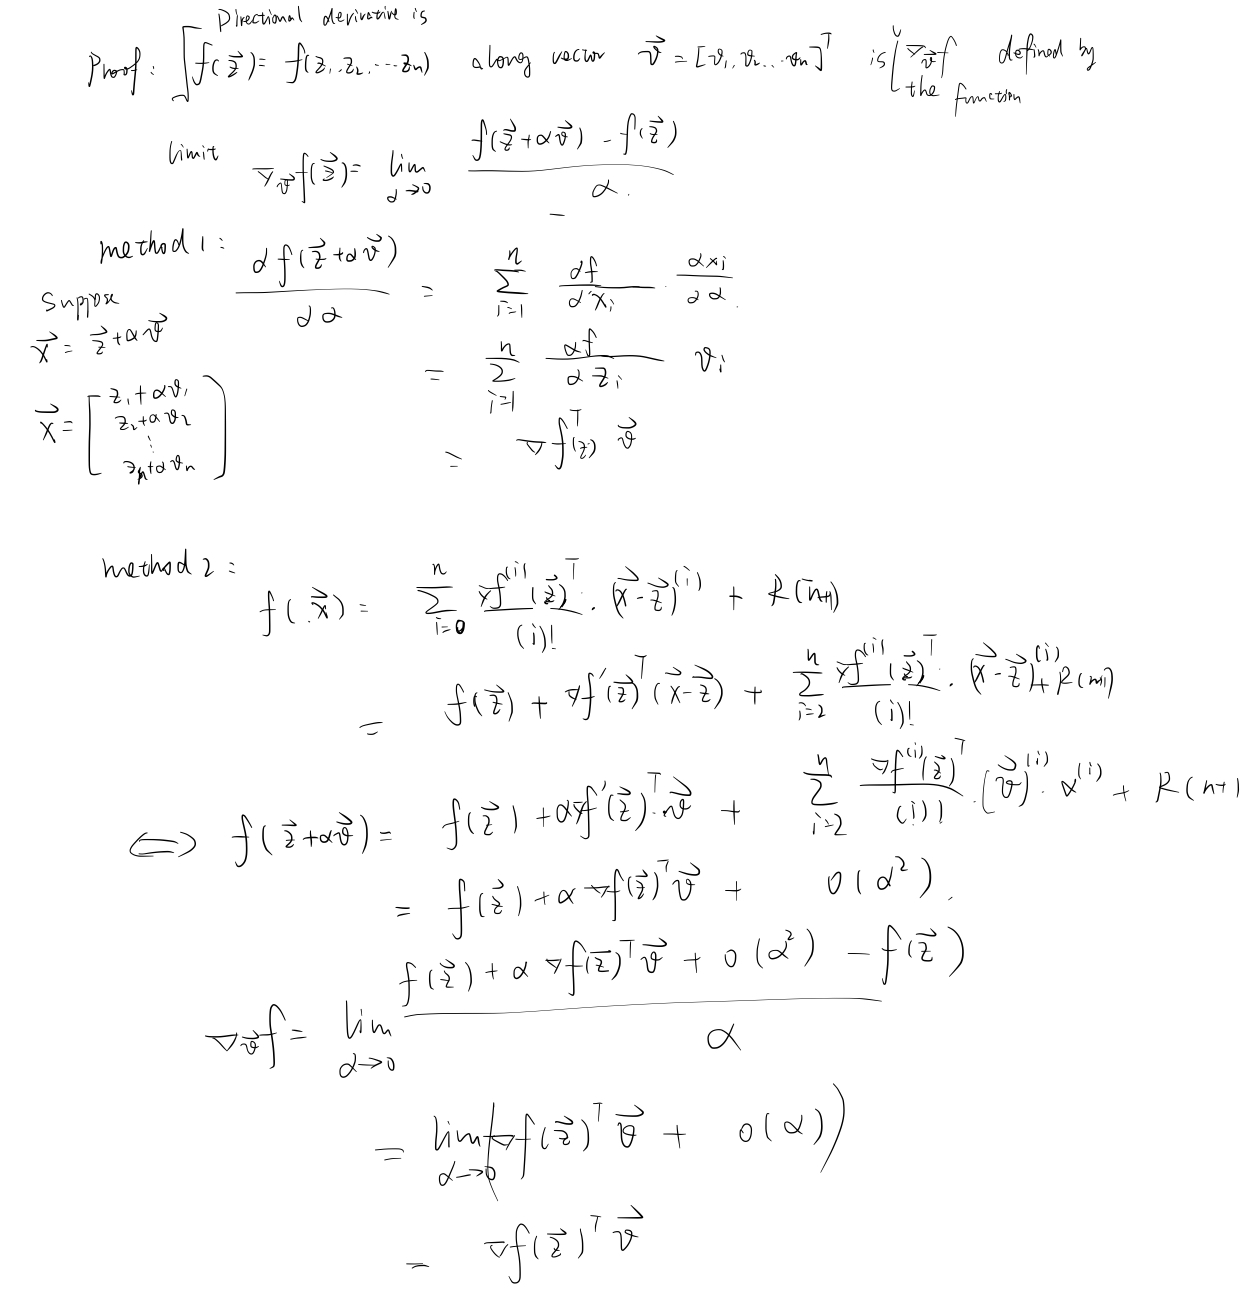 Directional derivative is
Proof: f(z⃗) = f(z₁, z₂, ... zn) along vector v⃗ = [v₁, v₂, .. vn]ᵀ is ∇v⃗ f defined by
the function
limit ∇v⃗ f(z⃗) = lim α→0 (f(z⃗+αv⃗) - f(z⃗)) / α.
method 1: d f(z⃗+αv⃗) / dα = Σ i=1 n df/dxi · dxi/dα
Suppose
x⃗ = z⃗+αv⃗
= Σ i=1 n df/dzi vi
x⃗ = [z₁+αv₁
z₂+αv₂
⋮
zn+αvn]
= ∇fᵀ(z) v⃗
method 2:
f(x⃗) = Σ i=0 n ∇f⁽ⁱ⁾(z⃗)ᵀ/(i)! · (x⃗-z⃗)⁽ⁱ⁾ + R(n+1)
= f(z⃗) + ∇f'(z⃗)ᵀ(x⃗-z⃗) + Σ i=2 n ∇f⁽ⁱ⁾(z⃗)ᵀ/(i)! · (x⃗-z⃗)⁽ⁱ⁾ + R(n+1)
⟺ f(z⃗+αv⃗) = f(z⃗) + α∇f'(z⃗)ᵀ·v⃗ + Σ i=2 n ∇f⁽ⁱ⁾(z⃗)ᵀ/(i)! · (v⃗)⁽ⁱ⁾ · α⁽ⁱ⁾ + R(n+1
= f(z⃗) + α∇f(z⃗)ᵀv⃗ + o(α²).
∇v⃗ f = lim α→0 (f(z⃗) + α∇f(z⃗)ᵀv⃗ + o(α²) - f(z⃗)) / α
= lim α→0 (∇f(z⃗)ᵀv⃗ + o(α))
= ∇f(z⃗)ᵀv⃗